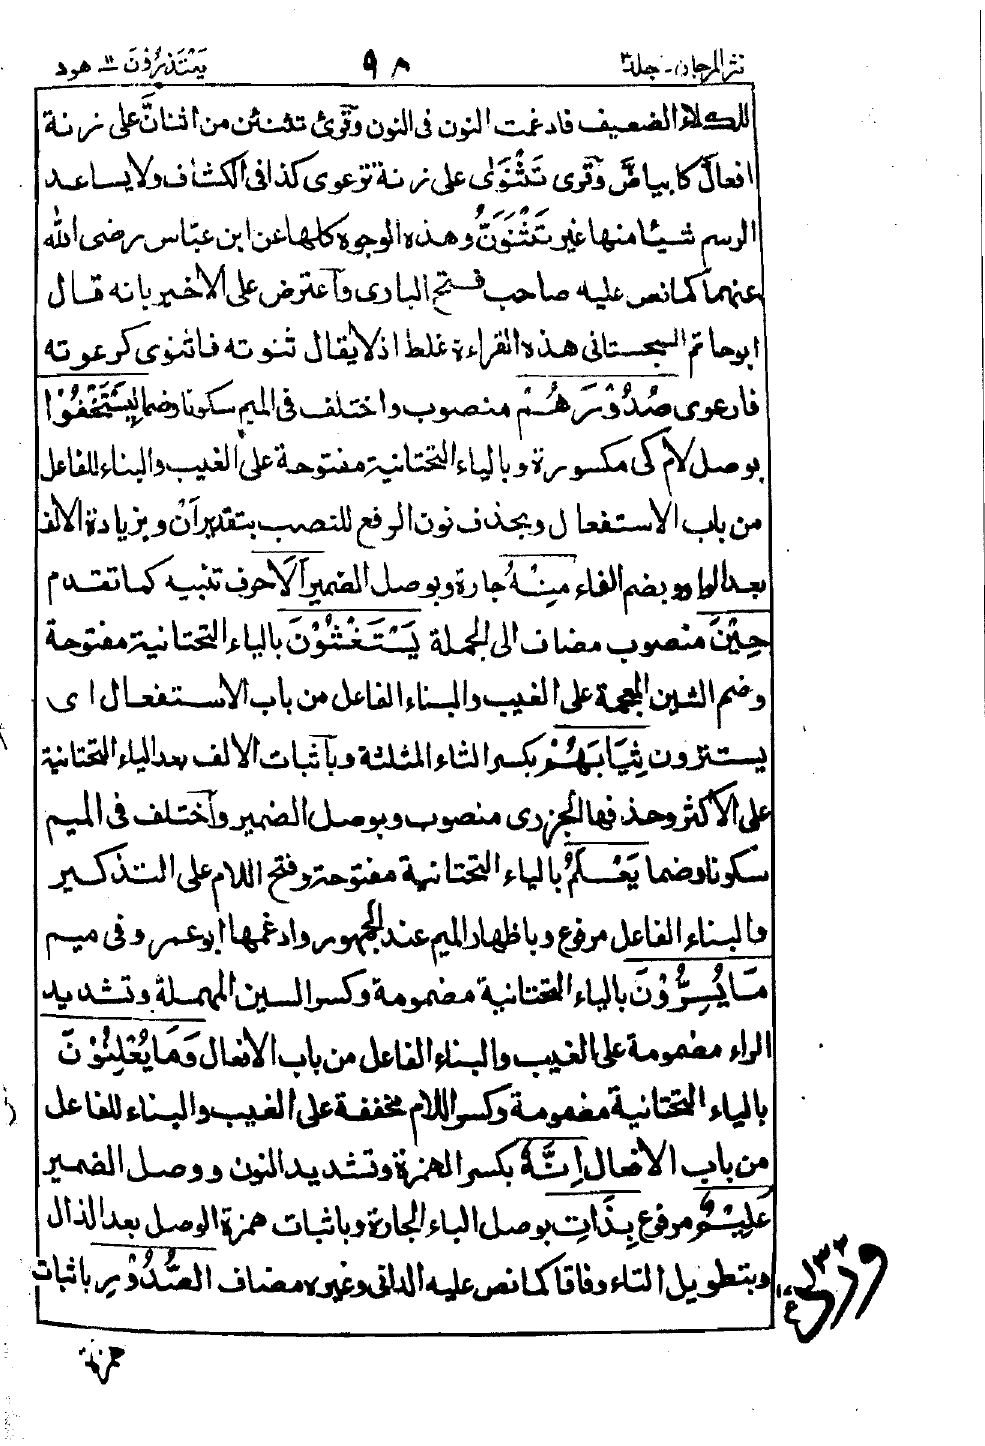 نثر المرجان - جلد ٣
٩٨
يعتذرون ١١ - هود
للكلاء الضعيف فادغمت النون فى النون وقرئ تثنئن من اثنانَّ على زنة
افعالّ كابياضّ وقرى تَثْنَوٰى على زنة ترعوى كذا فى الكشاف ولا يساعد
الرسم شيئا منها غير تَثْنَوَنُّ وهذه الوجوه كلها عن ابن عباس رضى الله
عنهما كما نص عليه صاحب فتح البارى وآعترض على الاخير بانه قال
ابو حاتم السجستانى هذه القراءة غلط اذ لا يقال ثنوته فاثنوى كرعوته
فارعوى صُدُوْرَهُمْ منصوب واختلف فى الميم سكونا وضما لِيَسْتَخْفُوْا
بوصل لام كى مكسورة وبالياء التحتانية مفتوحة على الغيب والبناء للفاعل
من باب الاستفعال وبحذف نون الرفع للنصب بتقدير اَنْ وبزيادة الالف
بعد الواو وبضم الفاء مِنْهُ جارة وبوصل الضمير اَلَا حرف تنبيه كما تقدم
حِيْنَ منصوب مضاف الى الجملة يَسْتَغْشُوْنَ بالياء التحتانية مفتوحة
وضم الشين المعجمة على الغيب والبناء الفاعل من باب الاستفعال اى
يستترون ثِيَابَهُمْ بكسر الثاء المثلثة وبآثبات الالف بعد الياء التحتانية
على الاكثر وحذفها الجزرى منصوب وبوصل الضمير وآختلف فى الميم
سكونا وضما يَعْلَمُ بالياء التحتانية مفتوحة وفتح اللام على التذكير
والبناء الفاعل مرفوع وباظهار الميم عند الجمهور وادغمها ابو عمرو فى ميم
مَا يُسِرُّوْنَ بالياء التحتانية مضمومة وكسر السين المهملة وتشديد
الراء مضمومة على الغيب والبناء الفاعل من باب الافعال وَمَا يُعْلِنُوْنَ
بالياء التحتانية مضمومة وكسر اللام مخففة على الغيب والبناء للفاعل
من باب الافعال اِنَّهٗ بكسر الهمزة وتشديد النون ووصل الضمير
عَلِيْمٌ مرفوع بِذَاتِ بوصل الباء الجارة وباثبات همزة الوصل بعد الذال
وبتطويل التاء وفاقا كما نص عليه الدانى وغيره مضاف الصُّدُوْرِ باثبات
همزة